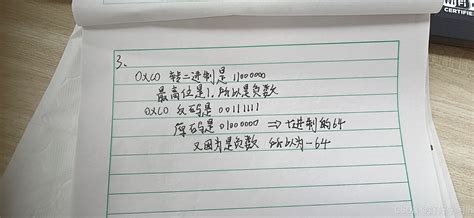 3、
0XC0 转二进制是 11000000
最高位是1,所以是负数
0XC0 反码是 00111111
原码是 01000000 => 十进制的64
又因为是负数 所以为-64
CERTIFIED